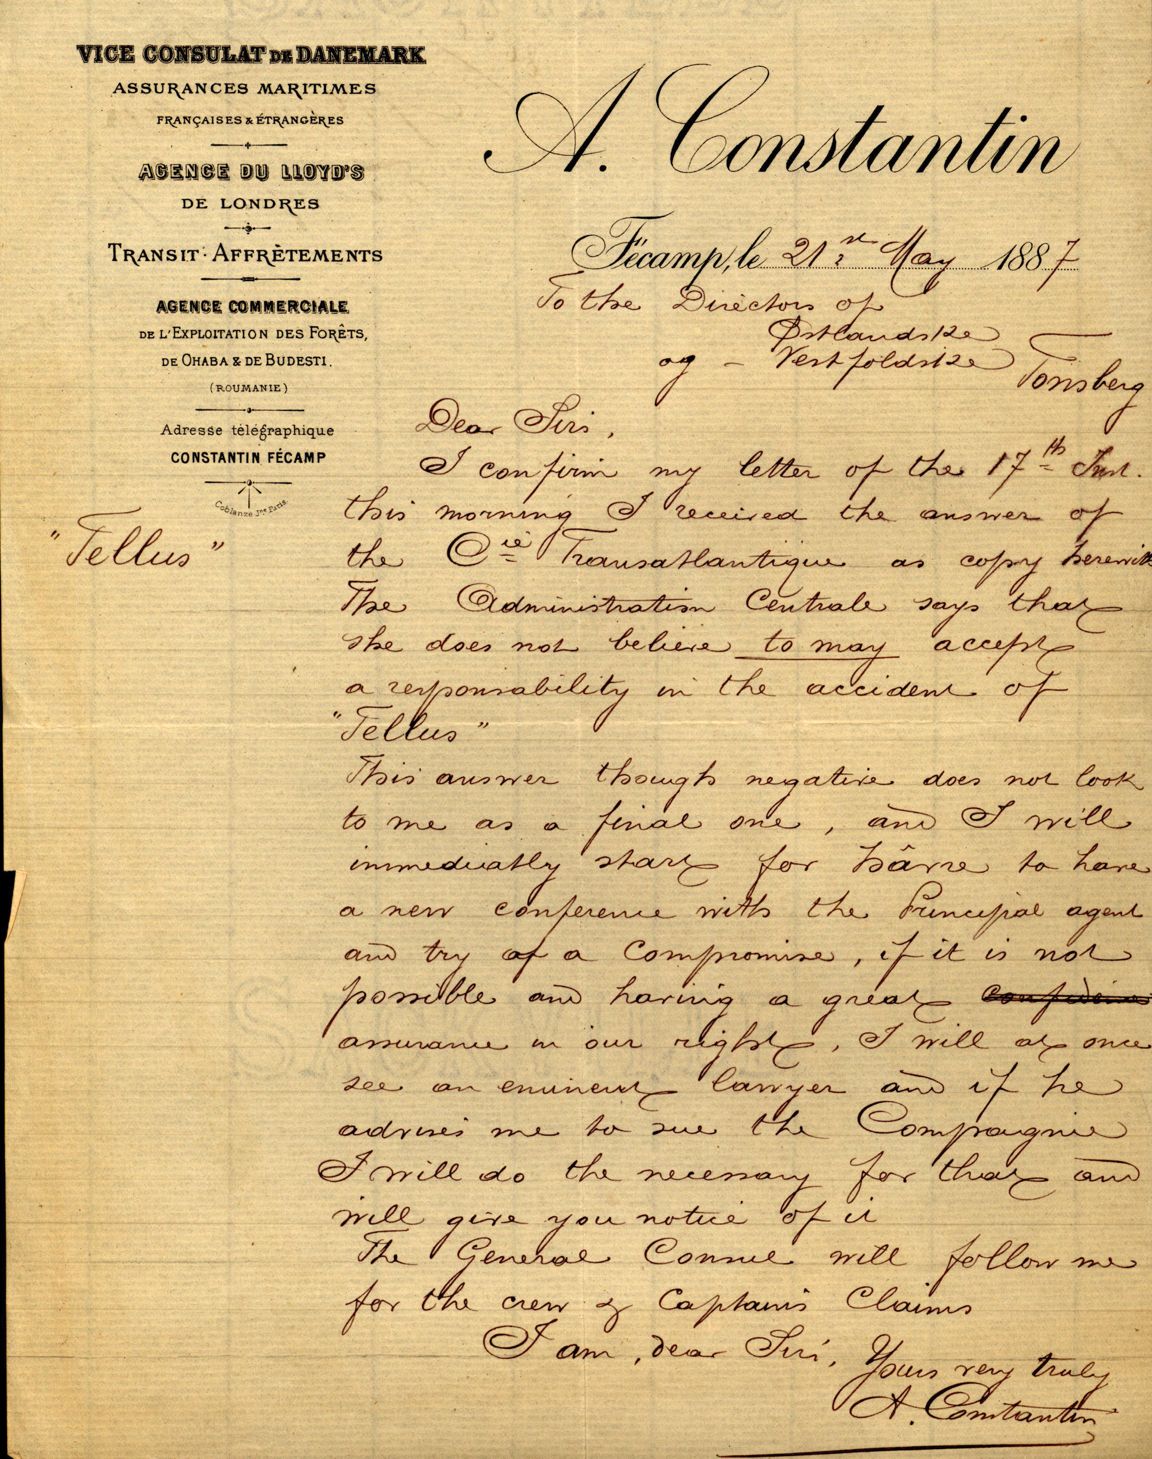 VICE CONSULAT DE DANEMARK
ASSURANCES MARITIMES
FRANÇAISES & ÉTRANGÈRES
AGENCE DU LLOYD'S
DE LONDRES
TRANSIT · AFFRÈTEMENTS
AGENCE COMMERCIALE
DE L'EXPLOITATION DES FORÊTS,
DE OHABA & DE BUDESTI.
(ROUMANIE)
Adresse télégraphique
CONSTANTIN FÉCAMP
Coblanze Jne Paris
A. Constantin
Fécamp, le 21st May 1887
To the Directors of
Østlandske
og - Vestfoldske
Tönsberg
Dear Sirs,
I confirm my letter of the 17th Inst.
this morning I received the answer of
"Tellus"
the Cie Transatlantique as copy herewith
The Administration Centrale says that
she does not believe to may accept
a responsability in the accident of
"Tellus"
This answer though negative does not look
to me as a final one, and I will
immediatly start for hâvre to have
a new conference with the Principal agent
and try of a compromise, if it is not
possible and having a great confidence
assurance in our right, I will at once
see an eminent lawyer and if he
advises me to sue the Compagnie
I will do the necessary for that and
will give you notice of it
The General Consul will follow me
for the crew & Captain's Claims
I am, dear Sirs, Yours very truly
A. Constantin